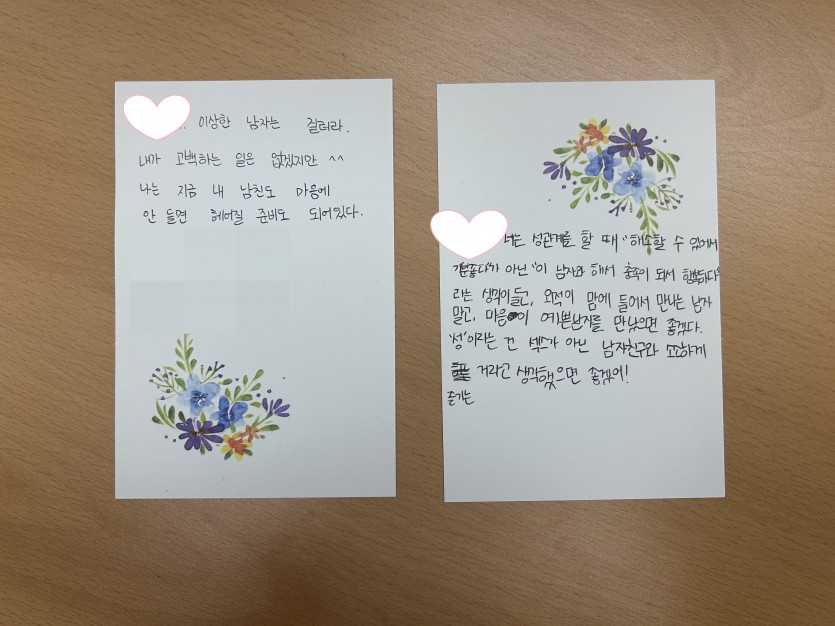 이상한 남자는 걸러라.
내가 고백하는 일은 없겠지만 ^^
나는 지금 내 남친도 마음에
안 들면 헤어질 준비도 되어있다.
너는 성관계를 할 때 "해소할 수 있어서
기분좋다"가 아닌 "이 남자와 해서 충족이 되서 행복하다"
라는 생각이들고, 외적이 맘에 들어서 만나는 남자
말고, 마음이 예쁜남자를 만났으면 좋겠다.
'성'이라는 건 섹스가 아닌 남자친구와 소소하게
거라고 생각했으면 좋겠어!
즐기는